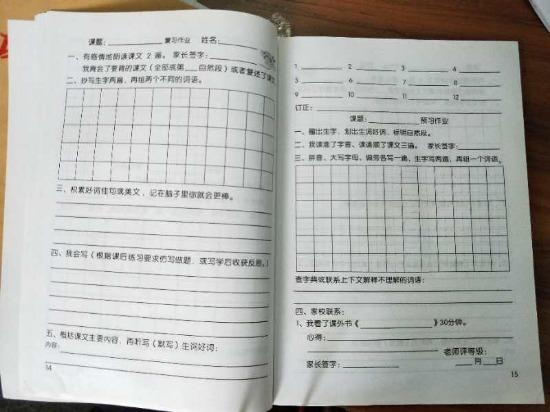 课题：____________复习作业 姓名：________
一、有感情地朗读课文 2 遍。 家长签字：________
我背会了要背的课文（全部或第___自然段）或者复述了课文
二、抄写生字两遍，再组两个不同的词语。
三、积累好词佳句或美文，记在脑子里你就会更棒。
四、我会写（根据课后练习要求仿写做题，或写学后收获反思。）
五、概括课文主要内容，再听写（默写）生词好词：
内容：
14
1 2 3 4
5 6 7 8
9 10 11 12
订正：
课题：____________预习作业
一、圈出生字，划出生词好词，标明自然段。
二、我读准了字音、读通顺了课文三遍。 家长签字：
三、拼音、大写字母、偏旁各写一遍，生字写两遍，再组一个词语。
查字典或联系上下文解释不理解的词语：
四、家校联系：
1、我看了课外书《____________》30分钟。
心得：
老师评等级：
家长签字：____________ ___月___日
15